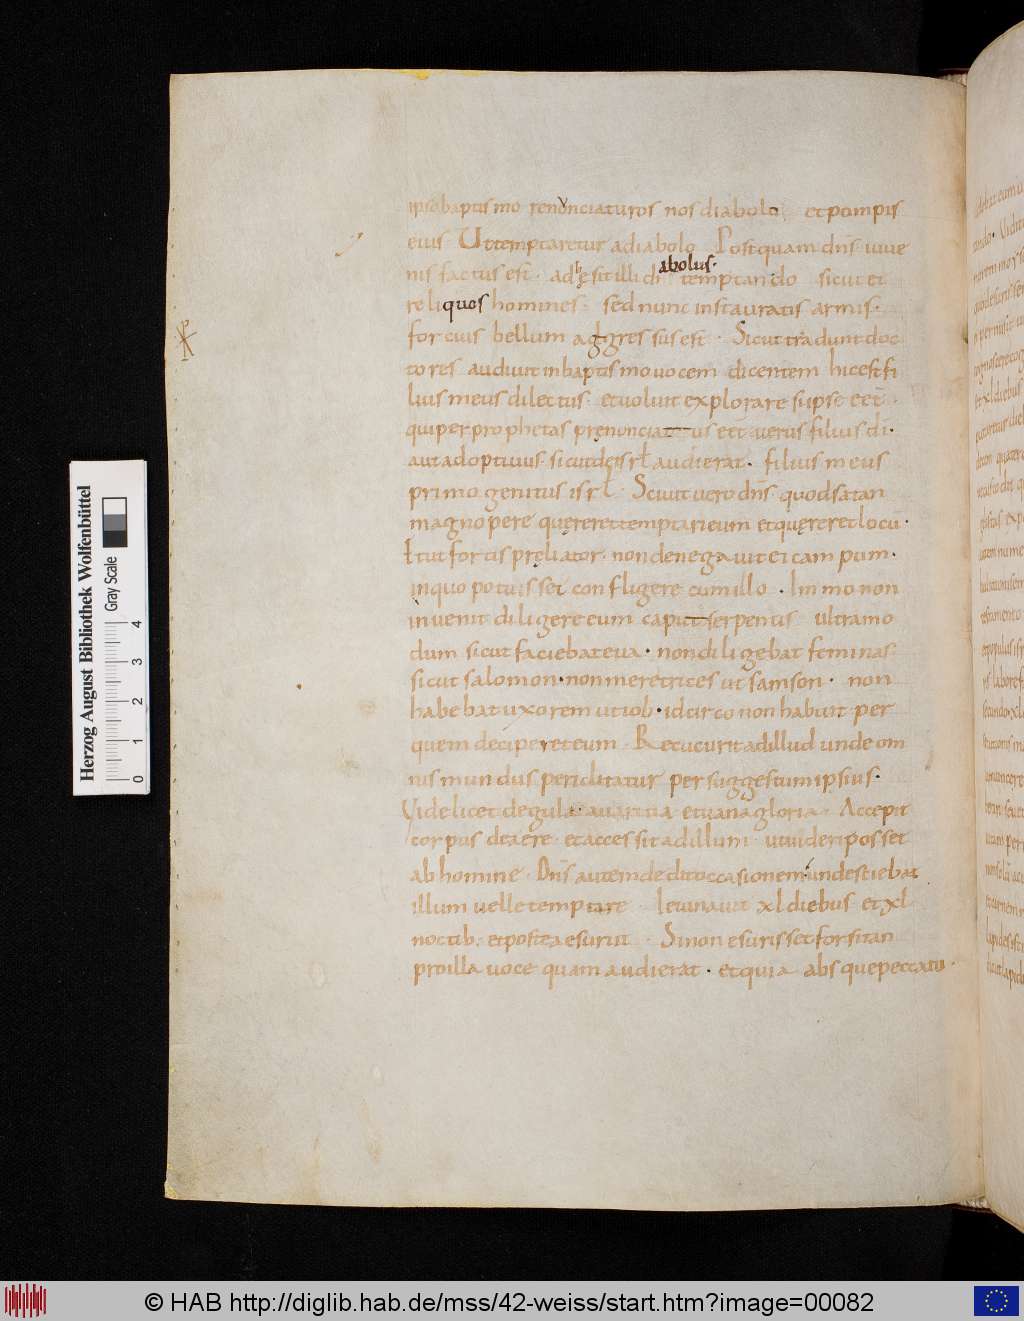 ipso baptismo renunciaturos nos diabolo. et pompis
eius Ut temptaretur a diabolo Postquam dns iuue
nis factus est. adhęsit illi diabolus. temptando sicut et
reliquos homines. sed nunc instauratis armis.
forcius bellum aggressus est. Sicut tradunt doc
tores audiuit in baptismo uocem dicentem hic est fi
lius meus dilectus. et uoluit explorare si ipse eēt.
qui per prophetas pręnonciatus eēt uerus filius di.
aut adoptiuus. sicut de isrł audierat. filius meus
primogenitus isrł. Sciuit uero dns quod satan
magnopere quęreret temptari eum et quęreret locū.
Et ut fortis pręliator. non denegauit ei campum.
in quo potuisset confligere cum illo. Immo non
inuenit diligere eum capita serpentis ultra mo
dum sicut faciebat eua. non diligebat feminas.
sicut salomon. non meretrices ut samson. non
habebat uxorem ut iob. idcirco non habuit per
quem deciperet eum. Recucurrit ad illud unde om
nis mundus periclitatur per suggestum ipsius.
Videlicet de gula auaritia et uana gloria. Accepit
corpus de aere. et accessit ad illum ut uideri posset
ab homine. Dns autem dedit occasionem unde sciebat
illum uelle temptare. Ieiunauit xl diebus et xl
noctib; et postea esuriit. Si non esurisset forsitan
pro illa uoce quam audierat. et quia absque peccato
Herzog August Bibliothek Wolfenbüttel
Gray Scale
0 1 2 3 4
© HAB http://diglib.hab.de/mss/42-weiss/start.htm?image=00082